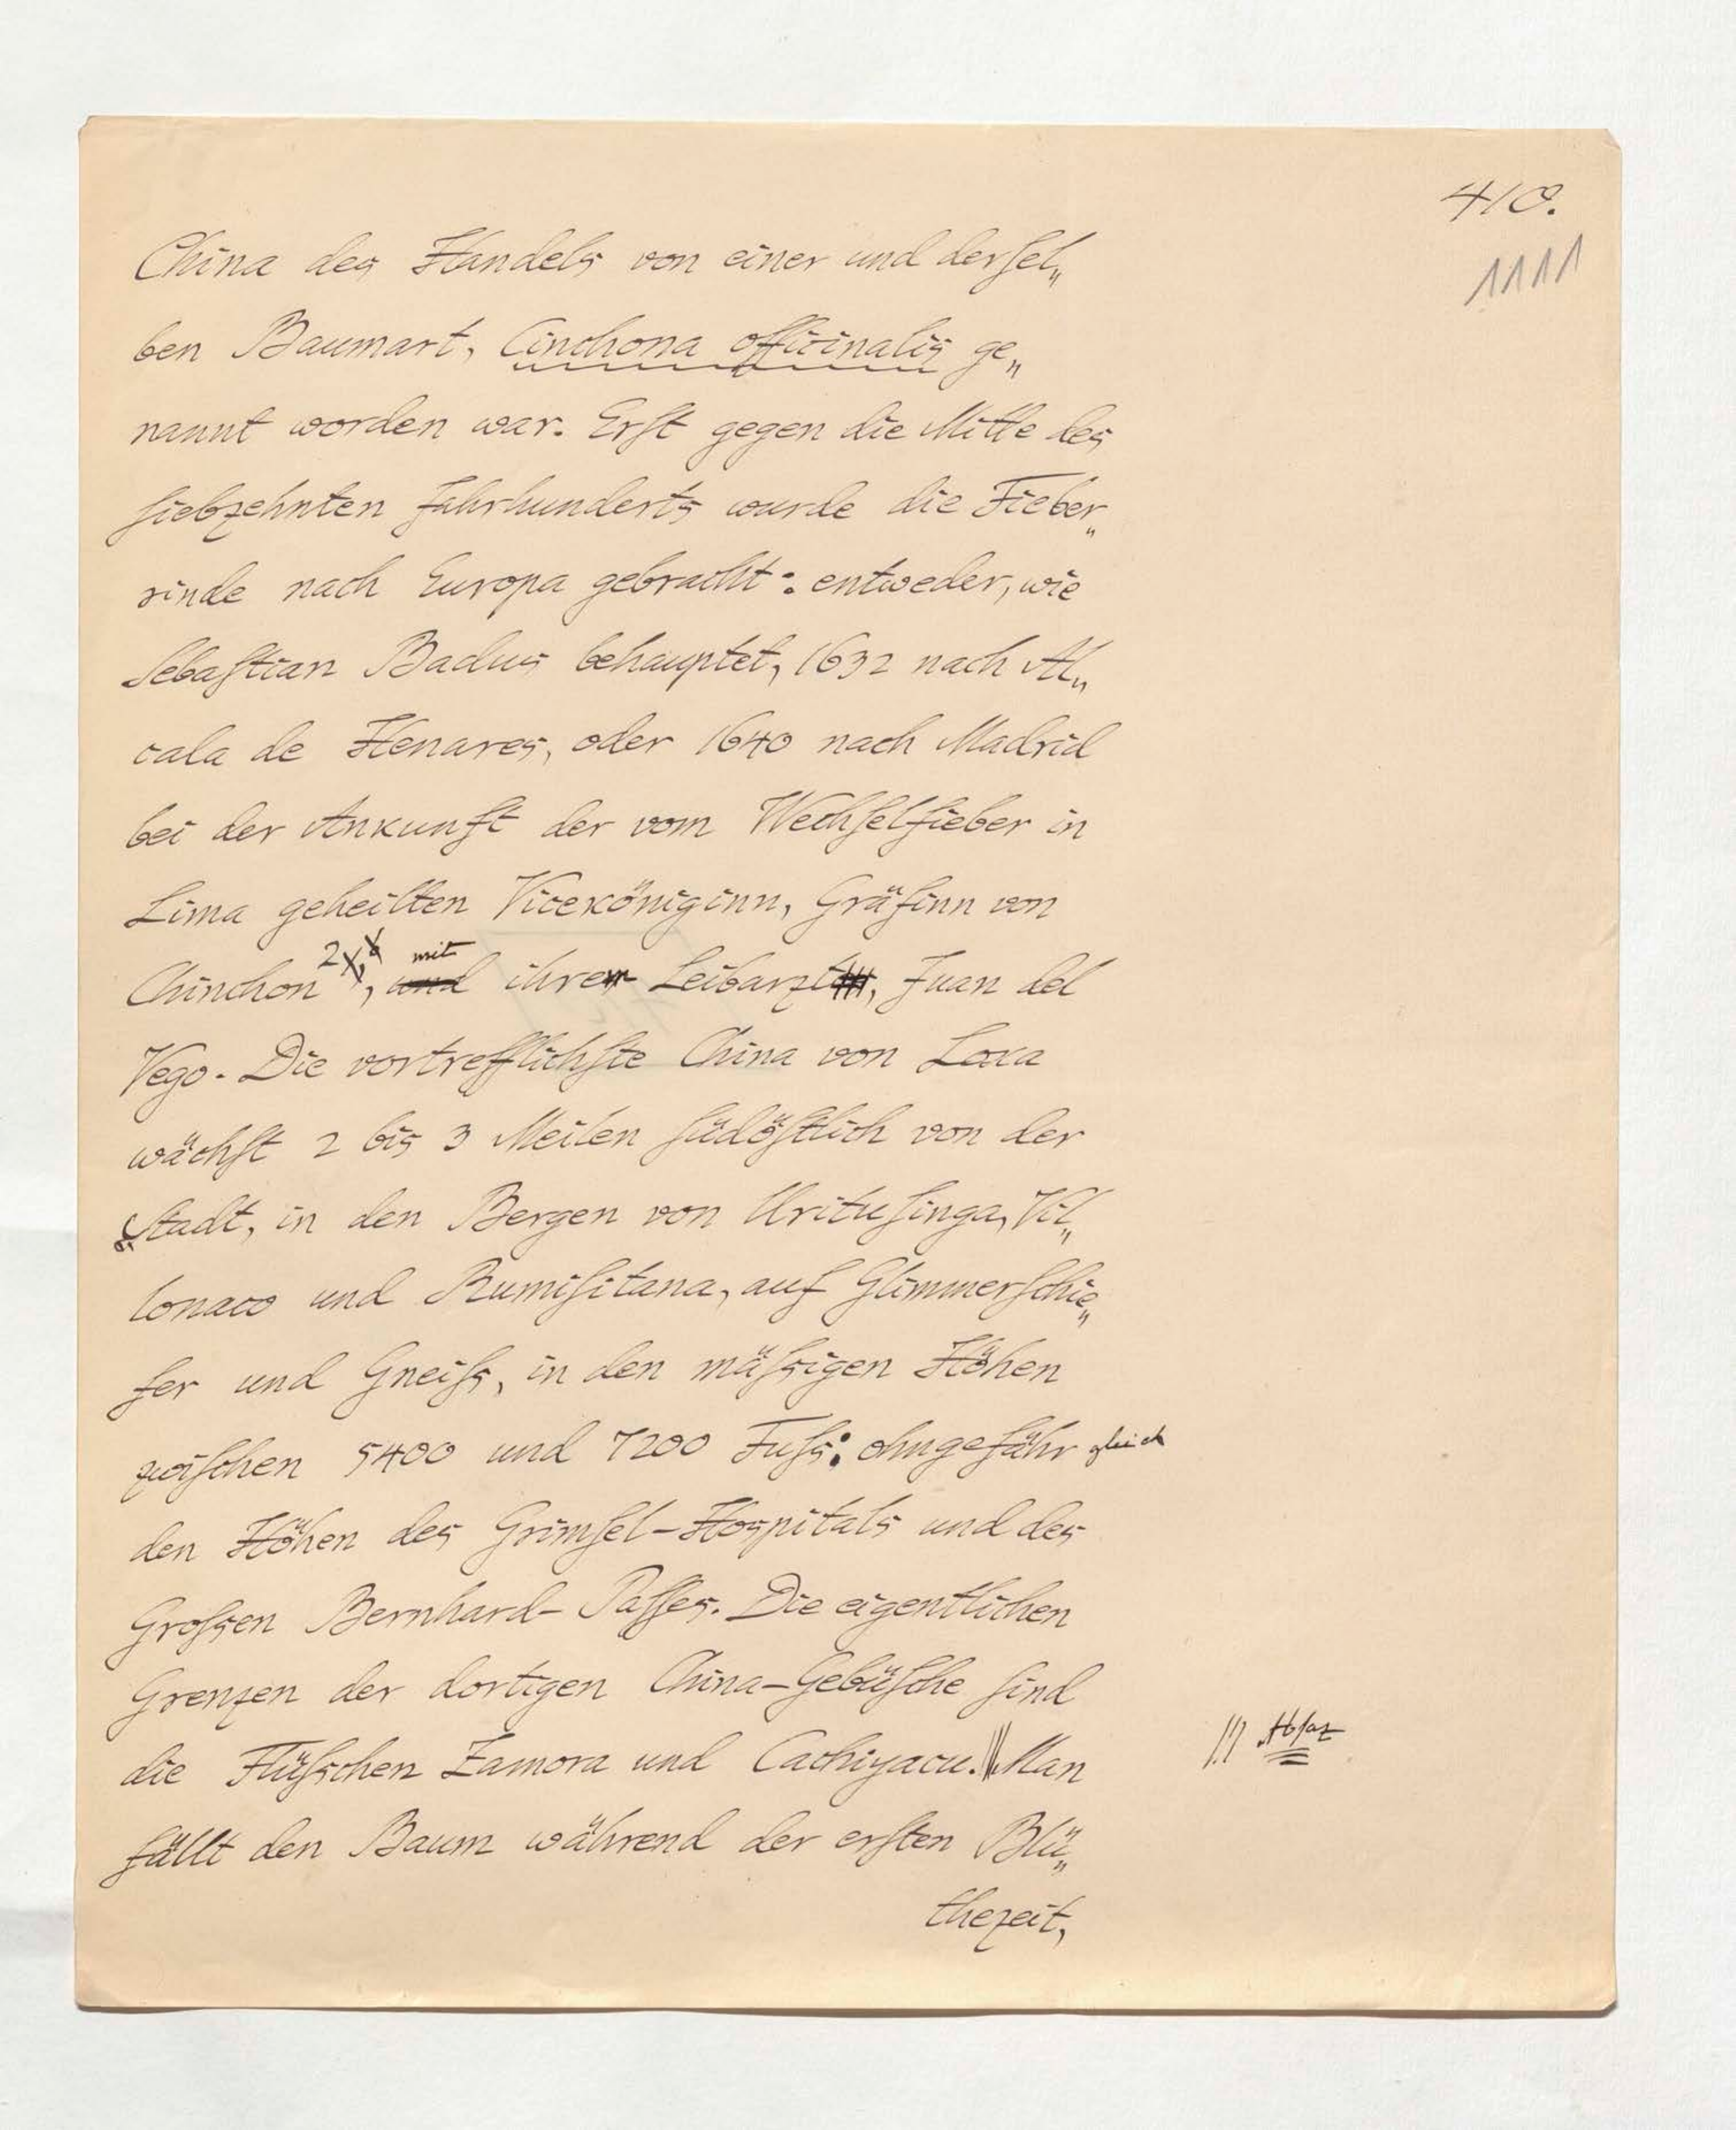 410.
1111
China des Handels von einer und derſel„
ben Baumart, Cinchona officinalis ge„
nannt worden war. Erſt gegen die Mitte des
ſiebzehnten Jahrhunderts wurde die Fieber„
rinde nach Europa gebracht: entweder, wie
Sebaſtian Badus behauptet, 1632 nach Al„
cala de Henares, oder 1640 nach Madrid
bei der Ankunft der vom Wechſelfieber in
Lima geheilten Viceköniginn, Gräfinn von
Chinchon, und mit ihrem Leibarzt, Juan del
Vego. Die vortrefflichſte China von Loxa
wächſt 2 bis 3 Meilen ſüdöſtlich von der
Stadt, in den Bergen von Urituſinga, Vil„
lonaco und Rumiſitana, auf Glimmerſchie„
fer und Gneiſs, in den mäſsigen Höhen
zwiſchen 5400 und 7200 Fuſs: ohngefähr gleich
den Höhen des Grimſel-Hospitals und des
Groſsen Bernhard-Paſſes. Die eigentlichen
Grenzen der dortigen China-Gebüſche ſind
die Flüſschen Zamora und Cachiyacu. Man
Absaz
fällt den Baum während der erſten Blü„
thezeit,